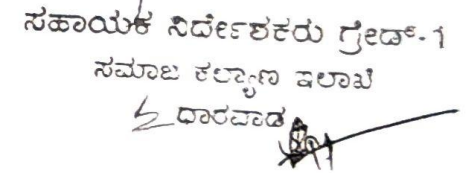 ಸಹಾಯಕ ನಿರ್ದೇಶಕರು ಗ್ರೇಡ್-1
ಸಮಾಜ ಕಲ್ಯಾಣ ಇಲಾಖೆ
ಧಾರವಾಡ